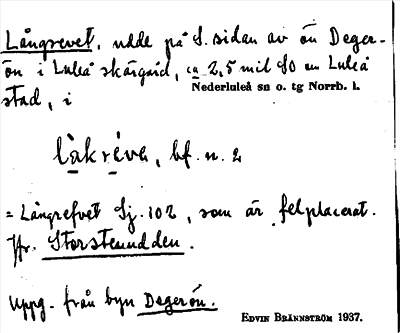 Långrevet, udde på S. sidan av ön Deger-
ön i Luleå skärgård, ca 2,5 mil SO om Luleå
Nederluleå sn o. tg Norrb. l.
stad, i
làkréva, bf. n. 2
= Långrefvet Sj. 102, som är felplacerat.
Jfr. Storstenudden.
Uppg. från byn Degerön.
EDVIN BRÄNNSTRÖM 1937.